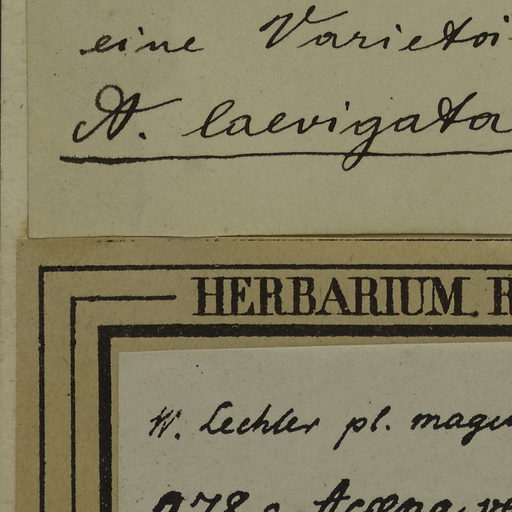 eine Varietä
A. laevigata
HERBARIUM. R
W. Lechler pl. mage
978 a Acaena